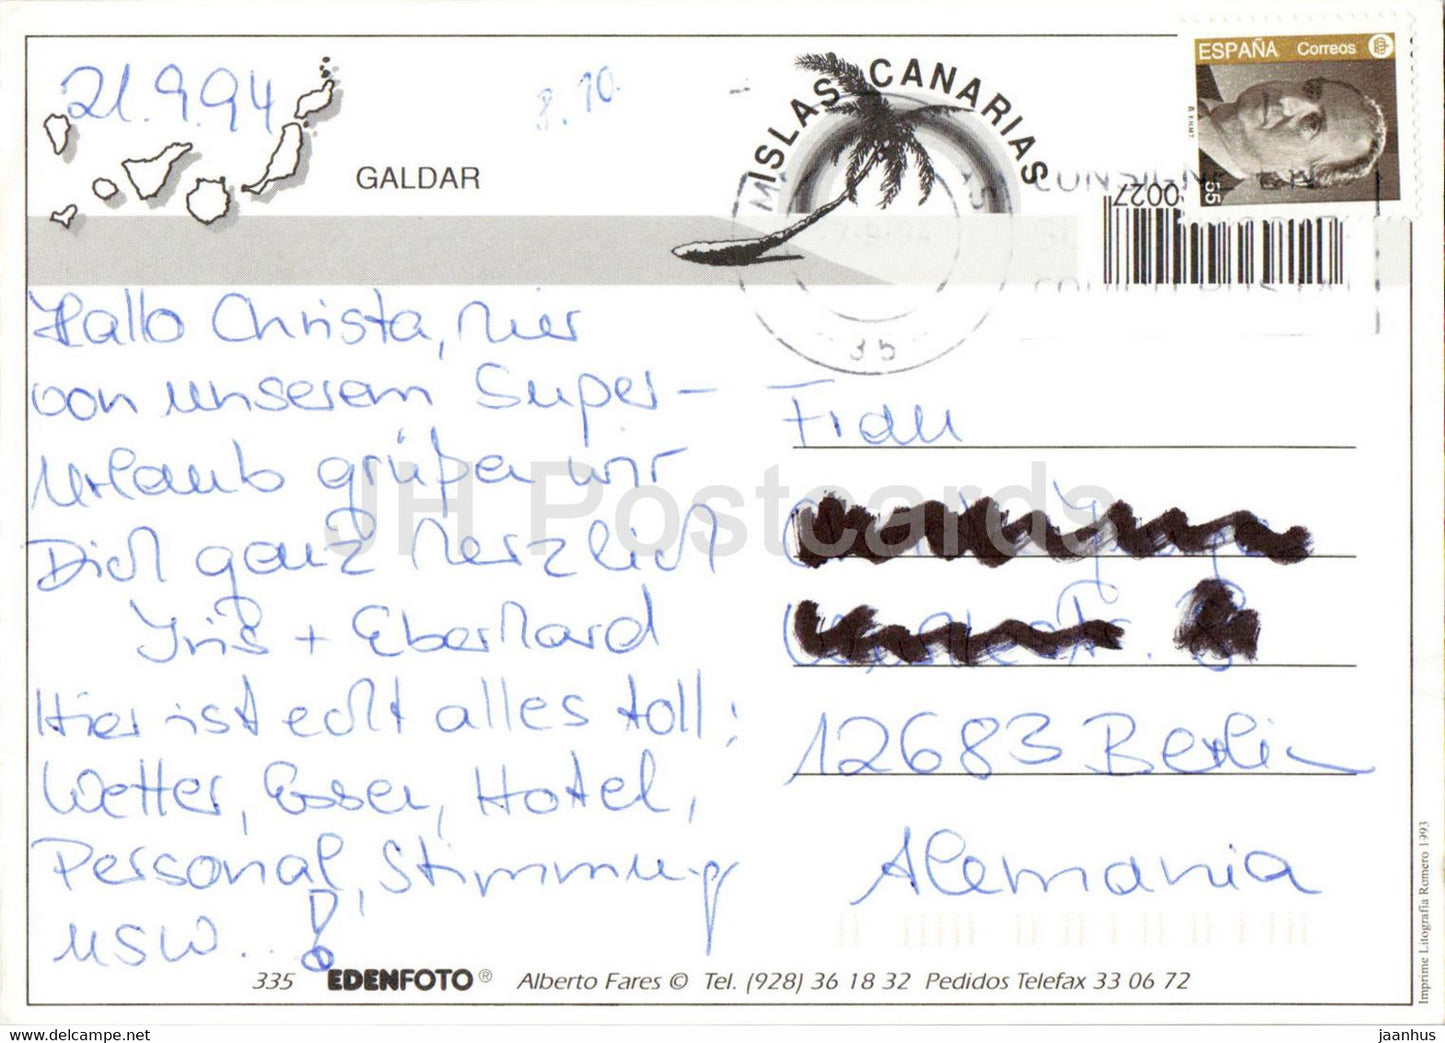 21.9.94
8.10.
ISLAS CANARIAS
ESPAÑA Correos
55
GALDAR
0027
35
Hallo Christa, hier
von unserem Super-
Urlaub grüßen wir
Dich ganz herzlich
Iris + Eberhard
Hier ist echt alles toll:
Wetter, Essen, Hotel,
Personal, Stimmung
usw...!
Frau
12683 Berlin
Alemania
335 EDENFOTO® Alberto Fares © Tel. (928) 36 18 32 Pedidos Telefax 33 06 72
Imprime Litografia Romero 1993
JH Postcards
delcampe.net
jaanhus